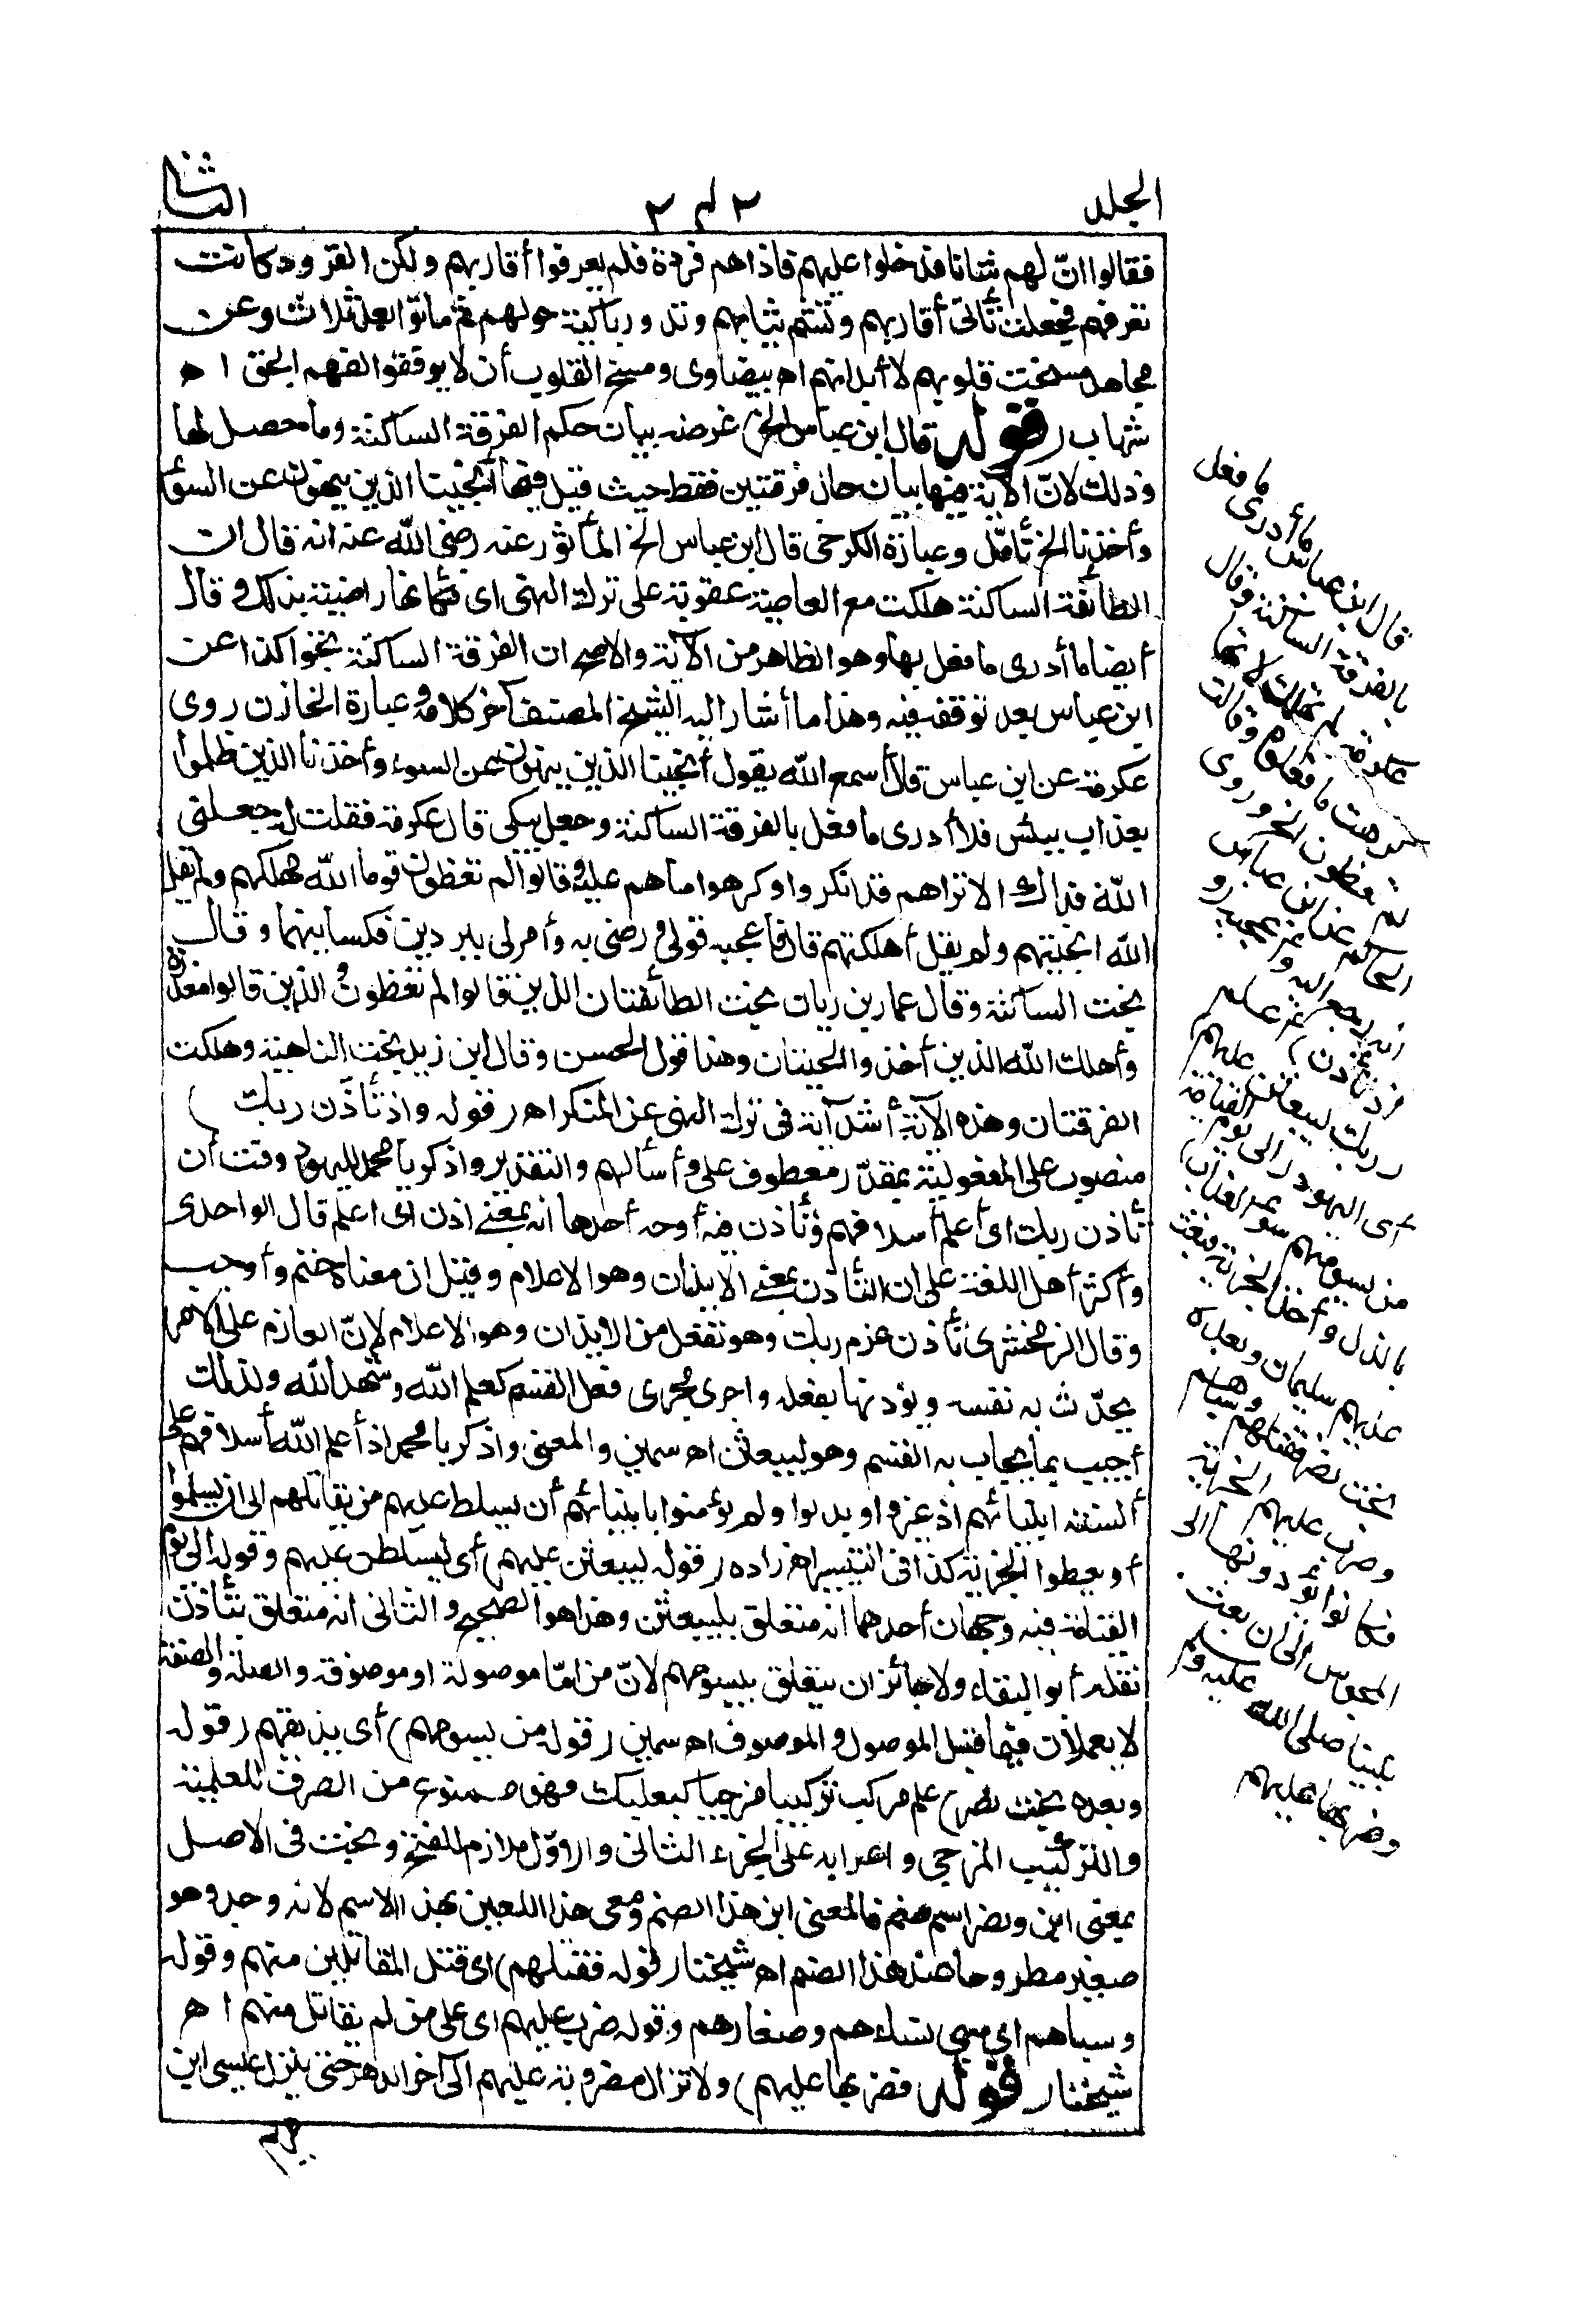 الجلد
٢٤٢
الثانى
فقالوا انّ لهم شانا فدخلوا عليهم فاذا هم قردة فلم يعرفوا أقاربهم ولكن القرود كانت
تعرفهم فجعلت تأتى أقاربهم وتشم ثيابهم وتدور باكية حولهم ثم ماتوا بعد ثلاث وعن
مجاهد مسخت قلوبهم لا أبدانهم اه بيضاوى ومسخ القلوب أن لا يوفقوا لفهم الحق ا ه
شهاب (قوله قال ابن عباس الخ) غرضه بيان حكم الفرقة الساكتة وما حصل لها
وذلك لانّ الآية فيها بيان حال فرقتين فقط حيث قيل فيها أنجينا الذين ينهون عن السوء
وأخذنا الخ تأمّل وعبارة الكرخى قال ابن عباس الخ المأثور عنه رضى الله عنه انه قال ان
الطائفة الساكتة هلكت مع العاصية عقوبة على ترك النهى اى فكانها راضية بذلك وقال
أيضا ما أدرى ما فعل بها وهو الظاهر من الآية والاصح ان الفرقة الساكتة نجوا كذا عن
ابن عباس بعد توقفه فيه وهذا ما أشار اليه الشيخ المصنف آخر كلامه وعبارة الخازن روى
عكرمة عن ابن عباس قال أسمع الله يقول أنجينا الذين ينهون عن السوء وأخذنا الذين ظلموا
بعذاب بيئس فلا أدرى ما فعل بالفرقة الساكتة وجعل يبكى قال عكرمة فقلت له جعلنى
الله فداك ألا تراهم قد انكروا وكرهوا ما هم عليه وقالوا لم تعظون قوما الله مهلكهم ولم يقل
الله انجيتهم ولم يقل أهلكتهم قال فأعجبه قولى ورضى به وأمر لى ببردين فكسانيهما وقال
نجت الساكتة وقال عمار بن ريان نجت الطائفتان الذين قالوا لم تعظون والذين قالوا معذرة
وأهلك الله الذين أخذوا الحيتان وهذا قول الحسن وقال ابن زيد نجت الناهية وهلكت
الفرقتان وهذه الآية أشد آية فى ترك النهى عن المنكر اه (قوله واذ تأذّن ربك)
منصوب على المفعولية بمقدّر معطوف على وأسألهم والتقدير واذكر يا محمد لليهود وقت أن
تأذن ربك اى أعلم أسلافهم وتأذن فيه أوجه أحدها انه بمعنى اذن اى اعلم قال الواحدى
وأكثر أهل اللغة على ان التأذن بمعنى الايذان وهو الاعلام وقيل ان معناه حتم وأوجب
وقال الزمخشرى تأذن عزم ربك وهو تفعل من الايذان وهو الاعلام لانّ العازم على الامر
يحدّث به نفسه ويؤذنها بفعله واجرى مجرى فعل القسم كعلم الله وشهد الله ولذلك
أجيب بما يجاب به القسم وهو ليبعثن اه سمين والمعنى واذكر يا محمد اذ أعلم الله أسلافهم على
ألسنة انبيائهم اذ غيروا وبدلوا ولم يؤمنوا بانبيائهم أن يسلط عليهم من يقاتلهم الى ان يسلموا
أو يعطوا الجزية كذا فى التيسير اه زاده (قوله ليبعثن عليهم) أى ليسلطن عليهم وقوله الى يوم
القيامة فيه وجهان أحدهما انه متعلق بليبعثن وهذا هو الصحيح والثانى انه متعلق بتأذن
نقله أبو البقاء ولا جائز ان يتعلق بيسومهم لانّ من امّا موصولة او موصوفة والصلة والصفة
لا يعملان فيما قبل الموصول والموصوف اه سمين (قوله من يسومهم) أى يذيقهم (قوله
وبعده بخت نصر) علم مركب تركيبا مزجيا كبعلبك فهو ممنوع من الصرف للعلمية
والتركيب المزجى واعرابه على الجزء الثانى والاوّل ملازم للفتح وبخت فى الاصل
بمعنى ابن ونصر اسم صنم فالمعنى ابن هذا الصنم وسمى هذا اللعين بهذا الاسم لانه وجد وهو
صغير مطروحا عند هذا الصنم اه شيخنا (قوله فقتلهم) اى قتل المقاتلين منهم وقوله
وسباهم اى سبى نساءهم وصغارهم وقوله ضرب عليهم اى على من لم يقاتل منهم ا ه
شيخنا (قوله فضربها عليهم) ولا تزال مضروبة عليهم الى آخر الدهر حتى ينزل عيسى ابن
مريم
قال ابن عباس ما أدرى ما فعل
بالفرقة الساكتة وقال
عكرمة لم تهلك لانها
كرهت ما فعلوه وقالت
لم تعظون الخ وروى
الحاكم عن ابن عباس
انه رجع اليه وأعجبه (و
اذ تأذن) أعلم
(ربك ليبعثن عليهم)
أى اليهود (الى يوم القيامة
من يسومهم سوء العذاب)
بالذل وأخذ الجزية فبعث
عليهم سليمان وبعده
بخت نصر فقتلهم وسباهم
وضرب عليهم الجزية
فكانوا يؤدونها الى
المجوس الى ان بعث
نبينا صلى الله عليه وسلم
وضربها عليهم